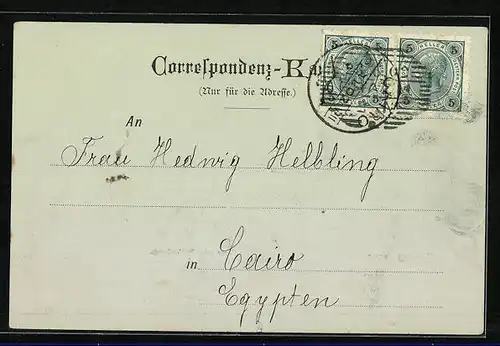 Correspondenz-Ka
(Nur für die Adresse.)
5 HELLER 5
5 HELLER 5
5 5
5 5
An
Frau Hedwig Helbling
in Cairo
Egypten